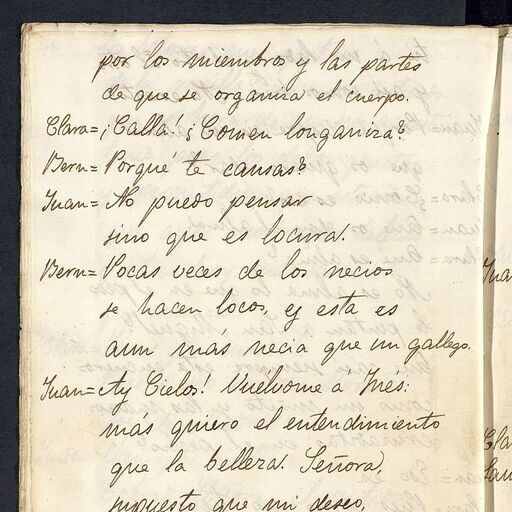 por los miembros y las partes
de que se organiza el cuerpo.
Clara= ¡Calla! ¿Comen longaniza?
Bern= Porqué te cansas?
Juan= No puedo pensar
sino que es locura.
Bern= Pocas veces de los necios
se hacen locos, y esta es
aun más necia que un gallego.
Juan= Ay Cielos! Vuélvome a Inés:
más quiero el entendimiento
que la belleza. Señora,
supuesto que mi deseo,
Jua
Cla
Jua